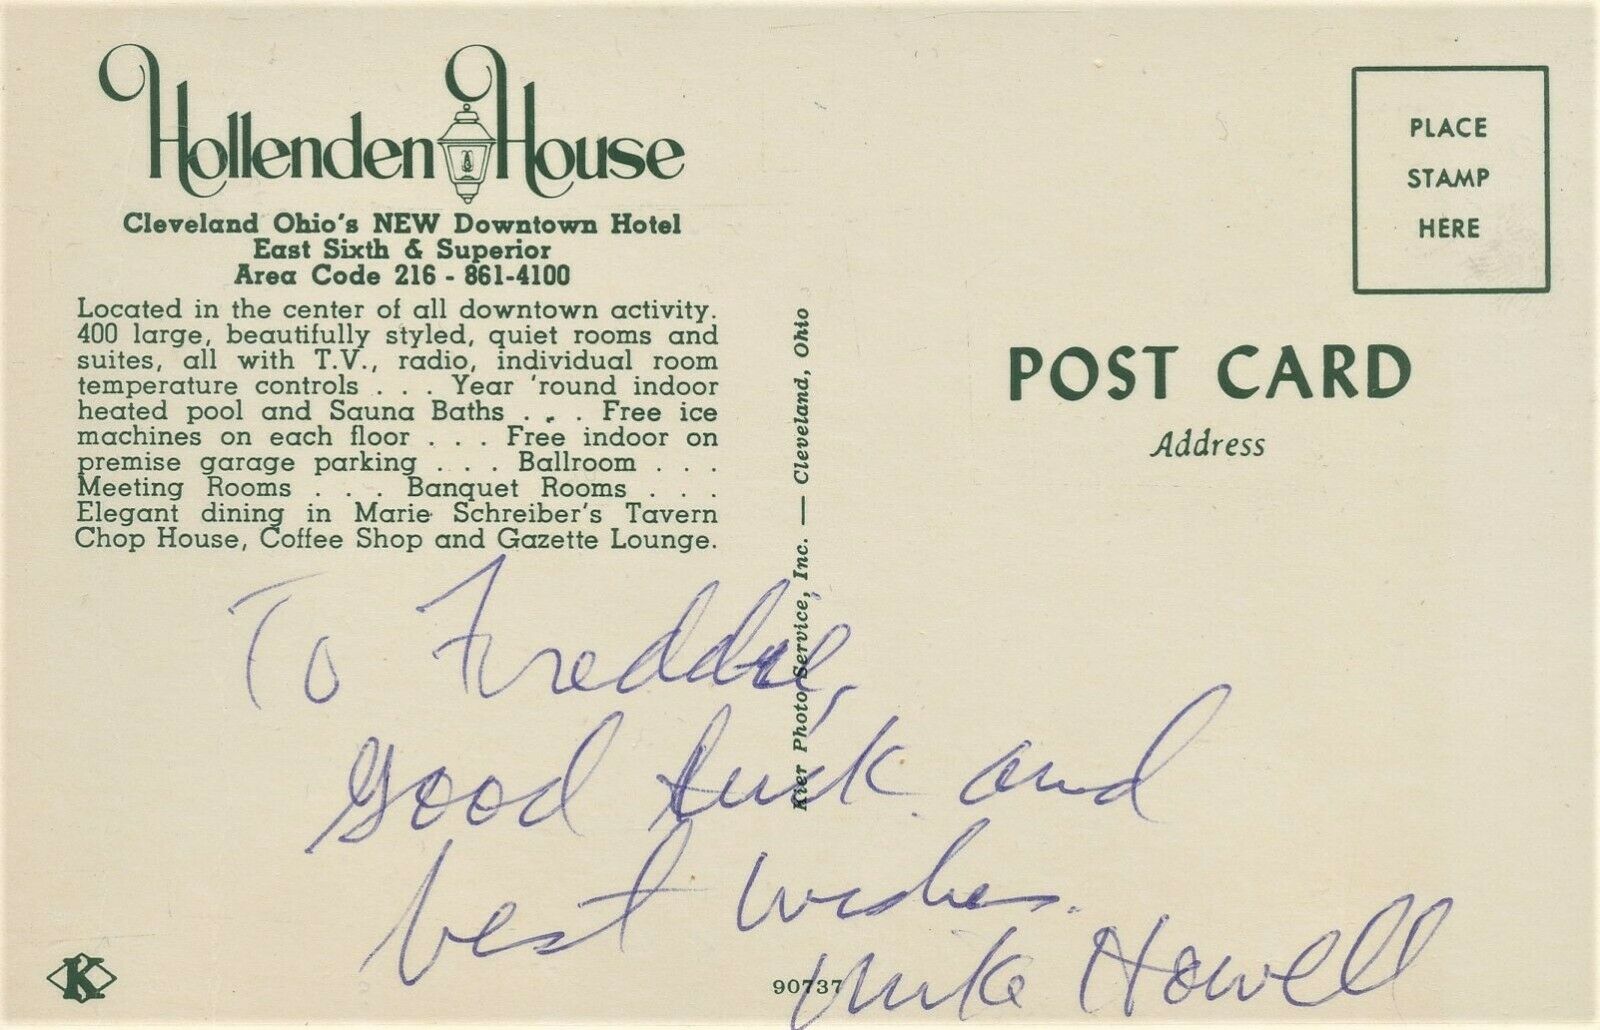 Hollenden House
Cleveland Ohio's NEW Downtown Hotel
East Sixth & Superior
Area Code 216 - 861-4100
Located in the center of all downtown activity.
400 large, beautifully styled, quiet rooms and
suites, all with T.V., radio, individual room
temperature controls . . . Year 'round indoor
heated pool and Sauna Baths . . . Free ice
machines on each floor . . . Free indoor on
premise garage parking . . . Ballroom . . .
Meeting Rooms . . . Banquet Rooms . . .
Elegant dining in Marie Schreiber's Tavern
Chop House, Coffee Shop and Gazette Lounge.
To Freddie,
Good luck and
best wishes.
Mike Howell
K
90737
Kier Photo Service, Inc. — Cleveland, Ohio
PLACE
STAMP
HERE
POST CARD
Address